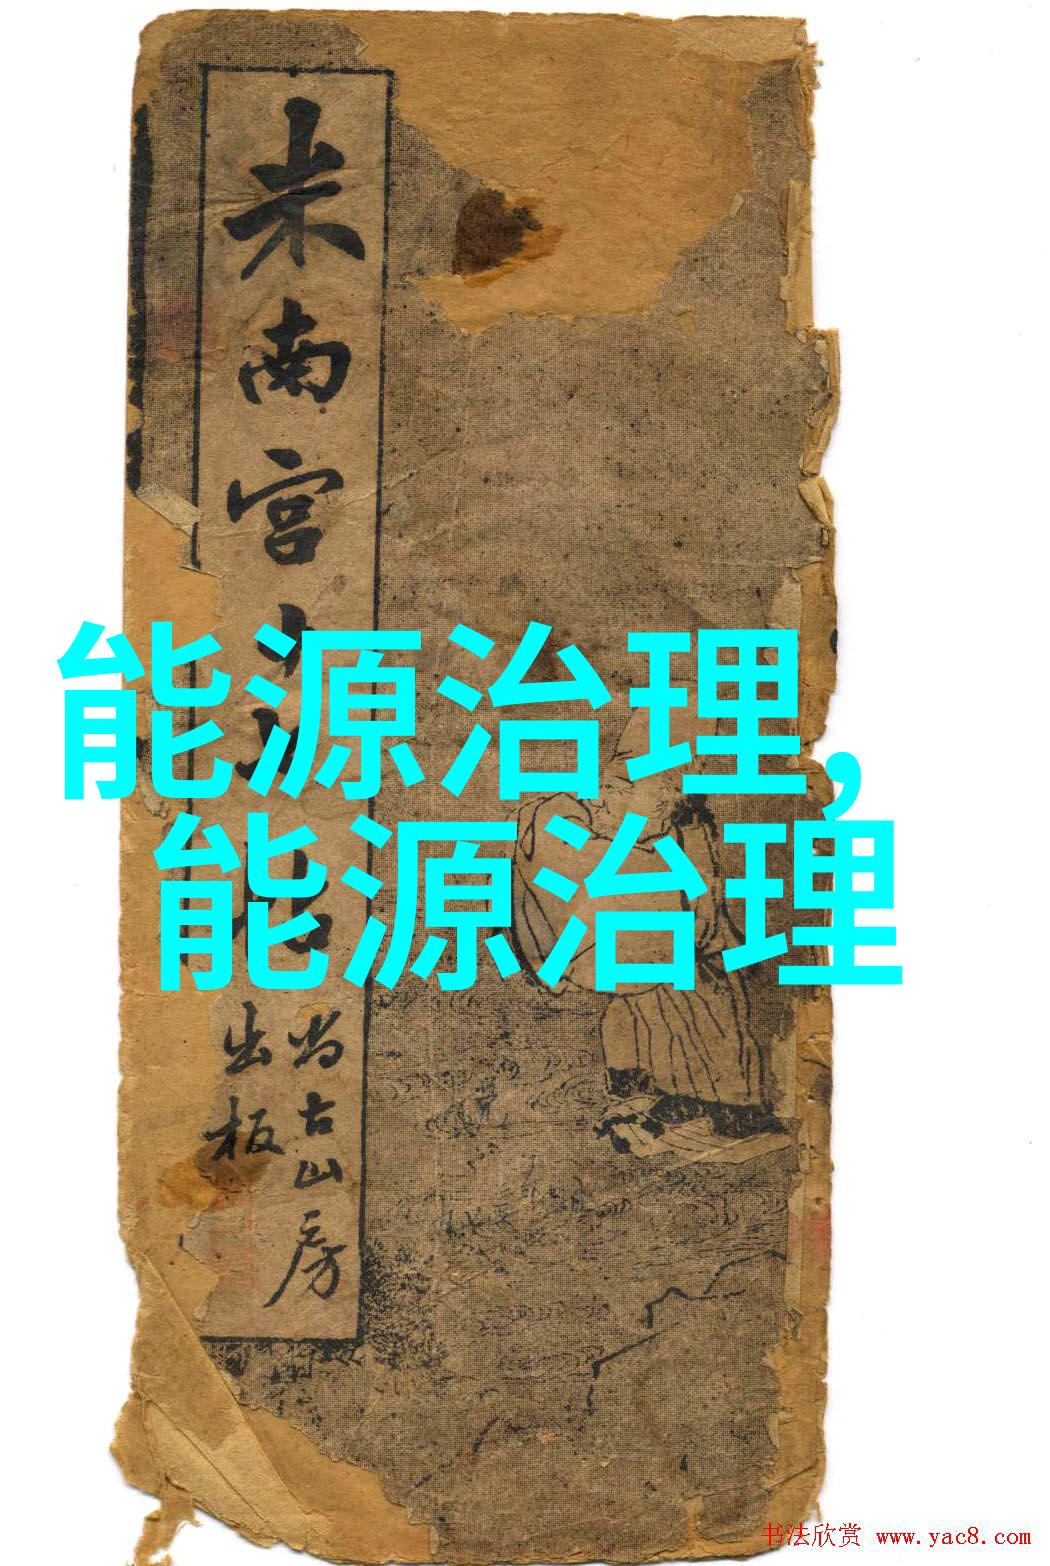 米南宫十
尚古山房
出板
能源治理,
能源治理
书法欣赏 www.yac8.com